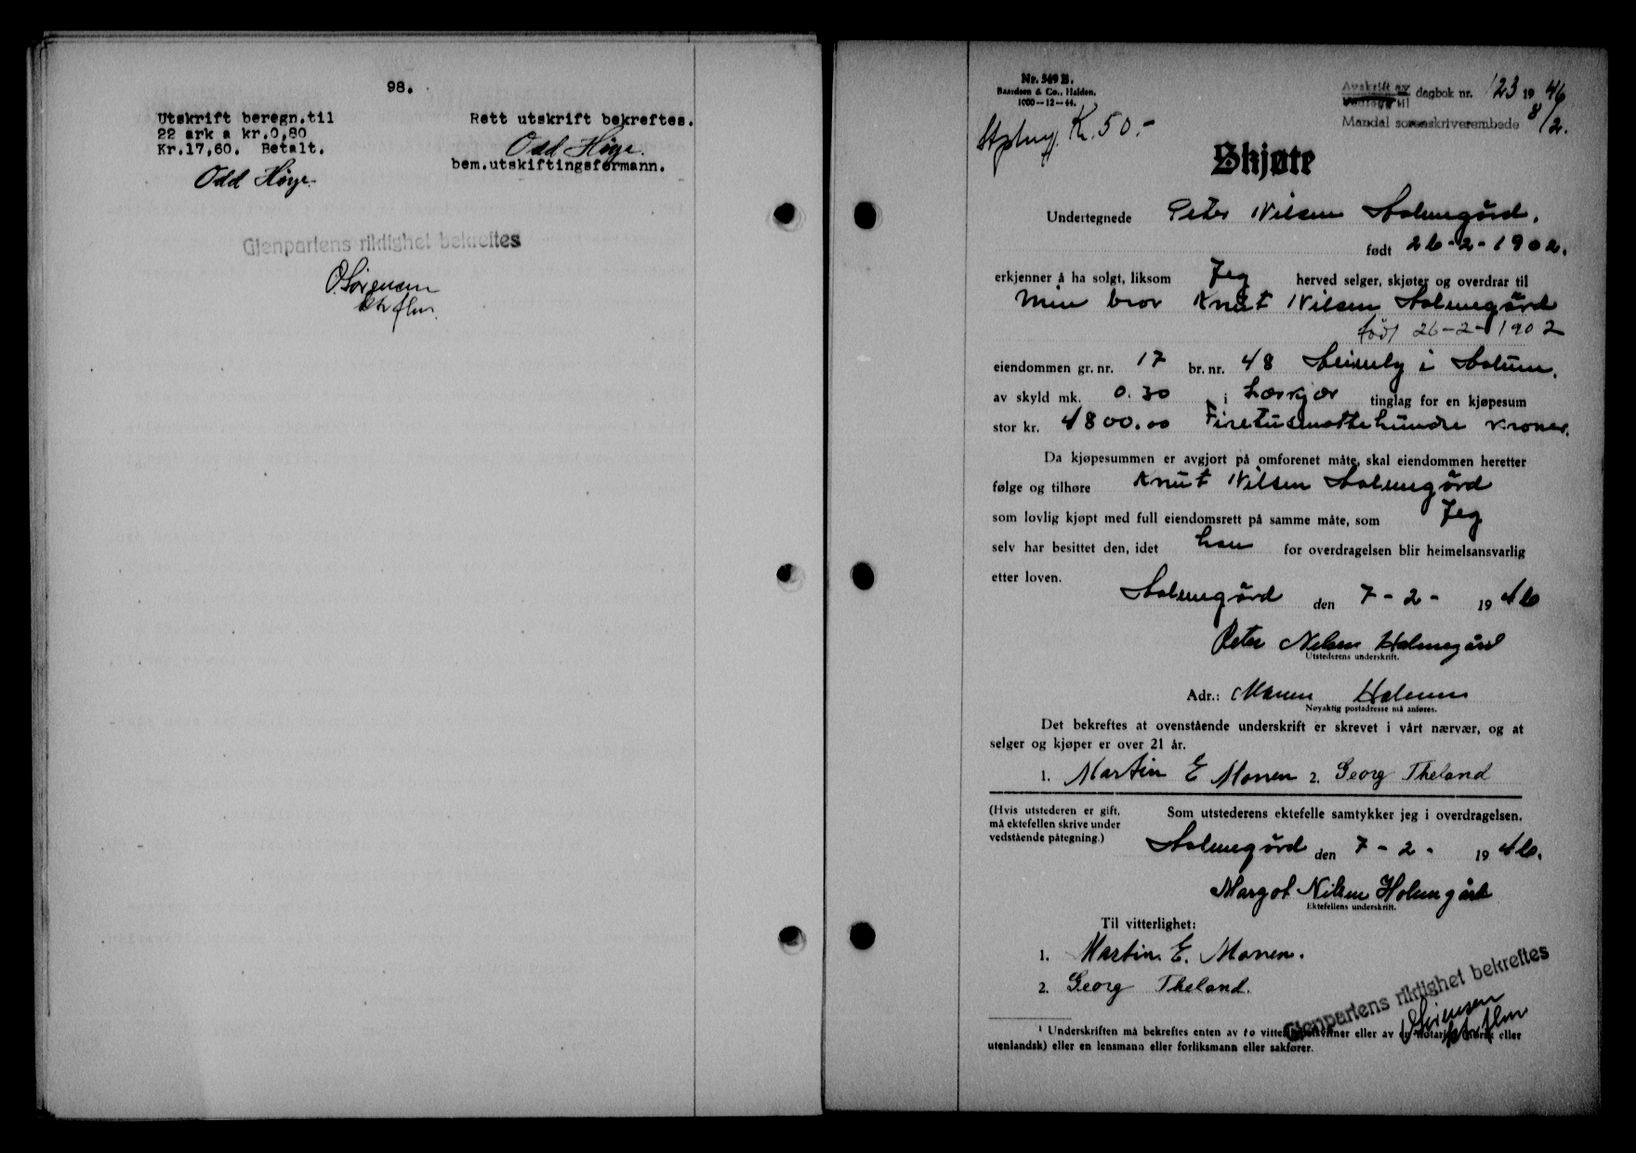 98.
Utskrift beregn.til
22 ark a kr.0,80
Kr.17,60. Betalt.
Odd Høye.
Rett utskrift bekreftes.
Odd Høye.
bem.utskiftingsformann.
Gjenpartens riktighet bekreftes
O. Sørensen
Nr. 549 B.
Baardsen & Co., Halden.
1000—12—44.
Kr. 50.-
Avskrift av
dagbok nr. 123 1946
Mandal sorenskriverembede 8/2.
Skjøte
Undertegnede Peter Nilsen Holmegård.
født 26-2-1902.
erkjenner å ha solgt, liksom Jeg herved selger, skjøter og overdrar til
min bror Knut Nilsen Holmegård
født 26-2-1902
eiendommen gr. nr. 17 br. nr. 48 Heimly i Holum.
av skyld mk. 0.30 i tinglag for en kjøpesum
stor kr. 4800.00 Firetusenottehundre kroner.
Da kjøpesummen er avgjort på omforenet måte, skal eiendommen heretter
følge og tilhøre Knut Nilsen Holmegård
som lovlig kjøpt med full eiendomsrett på samme måte, som Jeg
selv har besittet den, idet han for overdragelsen blir heimelsansvarlig
etter loven.
Holmegård den 7-2- 1946
Peter Nilsen Holmegård
Utstederens underskrift.
Adr.: Holum
Nøyaktig postadresse må anføres.
Det bekreftes at ovenstående underskrift er skrevet i vårt nærvær, og at
selger og kjøper er over 21 år.
1. Martin E Monen 2. Georg Theland
(Hvis utstederen er gift,
må ektefellen skrive under
vedstående påtegning.)
Som utstederens ektefelle samtykker jeg i overdragelsen.
Holmegård den 7-2- 1946.
Margot Nilsen Holmegård
Ektefellens underskrift.
Til vitterlighet:
1. Martin E. Monen.
2. Georg Theland.
Gjenpartens riktighet bekreftes
O Sørensen
1 Underskriften må bekreftes enten av to eller av eller
utenlandsk) eller en lensmann eller forliksmann eller sakfører.